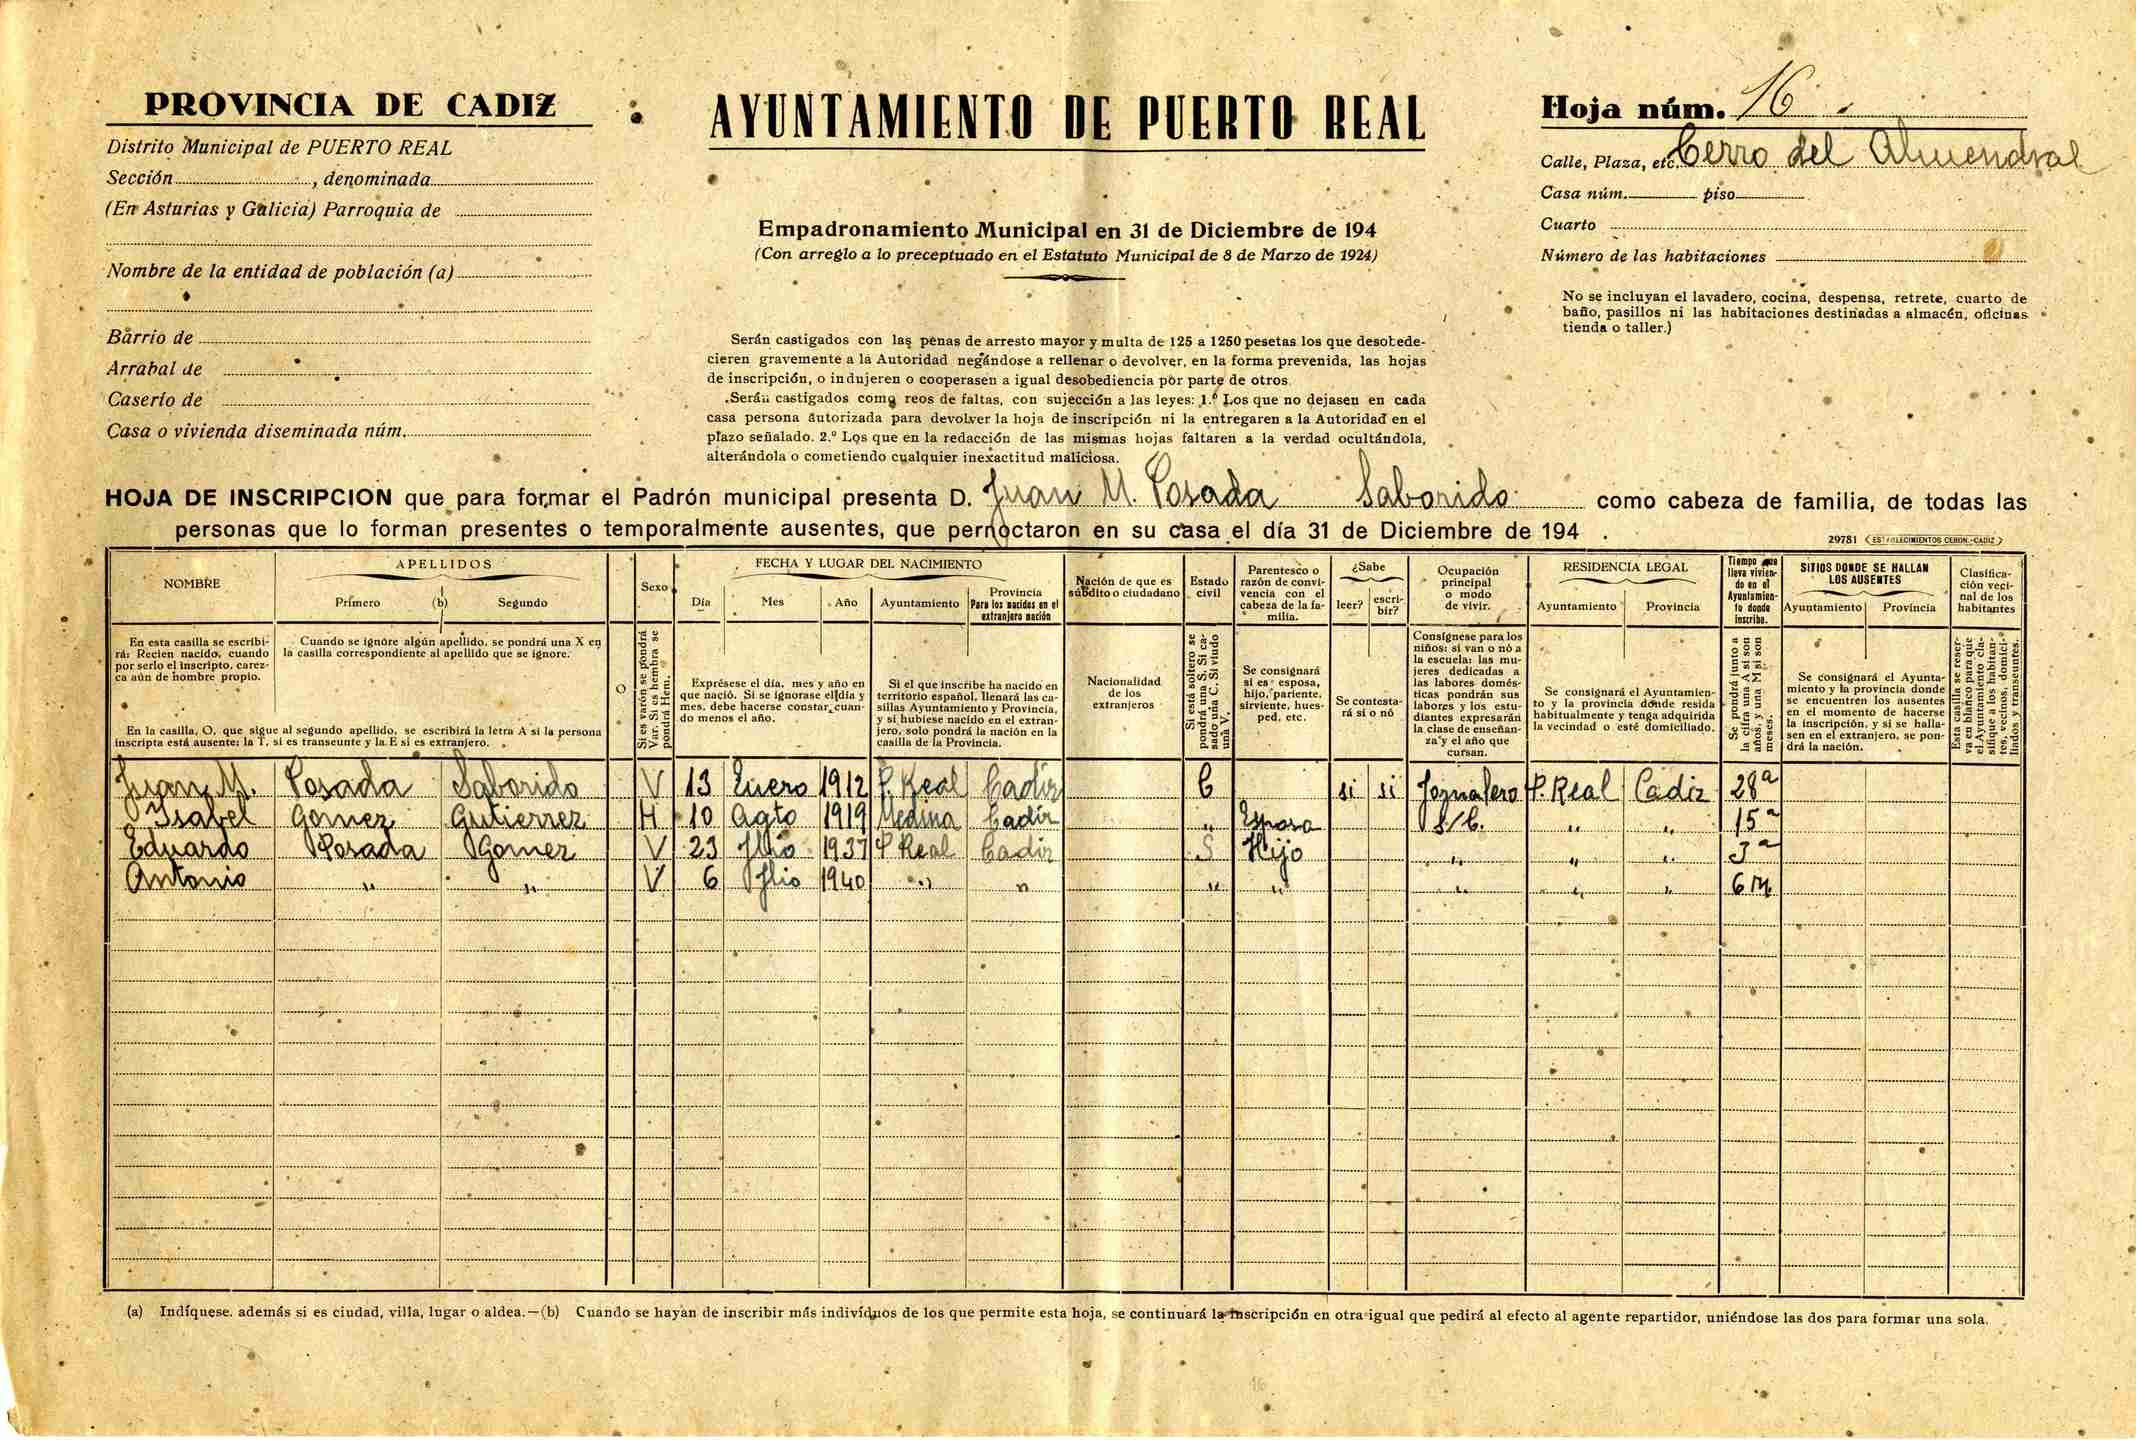 PROVINCIA DE CADIZ
Distrito Municipal de PUERTO REAL
Sección , denominada
(En Asturias y Galicia) Parroquia de
Nombre de la entidad de población (a)
Barrio de
Arrabal de
Caserío de
Casa o vivienda diseminada núm.
AYUNTAMIENTO DE PUERTO REAL
Empadronamiento Municipal en 31 de Diciembre de 194
(Con arreglo a lo preceptuado en el Estatuto Municipal de 8 de Marzo de 1924)
Serán castigados con las penas de arresto mayor y multa de 125 a 1250 pesetas los que desobede-
cieren gravemente a la Autoridad negándose a rellenar o devolver, en la forma prevenida, las hojas
de inscripción, o indujeren o cooperasen a igual desobediencia por parte de otros.
Serán castigados como reos de faltas, con sujección a las leyes: 1.º Los que no dejasen en cada
casa persona autorizada para devolver la hoja de inscripción ni la entregaren a la Autoridad en el
plazo señalado. 2.º Los que en la redacción de las mismas hojas faltaren a la verdad ocultándola,
alterándola o cometiendo cualquier inexactitud maliciosa.
Hoja núm. 16
Calle, Plaza, etc. Cerro del Almendral
Casa núm. piso
Cuarto
Número de las habitaciones
No se incluyan el lavadero, cocina, despensa, retrete, cuarto de
baño, pasillos ni las habitaciones destinadas a almacén, oficinas
tienda o taller.)
HOJA DE INSCRIPCION que para formar el Padrón municipal presenta D. Juan M. Posada Saborido como cabeza de familia, de todas las
personas que lo forman presentes o temporalmente ausentes, que pernoctaron en su casa el día 31 de Diciembre de 194 .
29781 (ESTABLECIMIENTOS CERON.-CADIZ)
NOMBRE
APELLIDOS
Primero (b) Segundo
Sexo
FECHA Y LUGAR DEL NACIMIENTO
Día Mes Año Ayuntamiento
Provincia
Para los nacidos en el
extranjero nación
Nación de que es
súbdito o ciudadano
Estado
civil
Parentesco o
razón de convi-
vencia con el
cabeza de la fa-
milia.
¿Sabe
leer? escri-
bir?
Ocupación
principal
o modo
de vivir.
RESIDENCIA LEGAL
Ayuntamiento Provincia
Tiempo que
lleva vivien-
do en el
Ayuntamien-
to donde
inscribe.
SITIOS DONDE SE HALLAN
LOS AUSENTES
Ayuntamiento Provincia
Clasifica-
ción veci-
nal de los
habitantes
En esta casilla se escribi-
rá: Recien nacido, cuando
por serlo el inscripto, carez-
ca aún de nombre propio.
Cuando se ignore algún apellido, se pondrá una X en
la casilla correspondiente al apellido que se ignore.
En la casilla, O, que sigue al segundo apellido, se escribirá la letra A si la persona
inscripta está ausente: la T, si es transeunte y la E si es extranjero.
O
Si es varón se pondrá
Var. Si es hembra se
pondrá Hem.
Exprésese el día, mes y año en
que nació. Si se ignorase el día y
mes, debe hacerse constar, cuan-
do menos el año.
Si el que inscribe ha nacido en
territorio español, llenará las ca-
sillas Ayuntamiento y Provincia,
y si hubiese nacido en el extran-
jero, solo pondrá la nación en la
casilla de la Provincia.
Nacionalidad
de los
extranjeros
Si está soltero se
pondrá una S. Si ca-
sado una C. Si viudo
una V.
Se consignará
si es esposa,
hijo, pariente,
sirviente, hues-
ped, etc.
Se contesta-
rá si o nó
Consígnese para los
niños: si van o nó a
la escuela: las mu-
jeres dedicadas a
las labores domés-
ticas pondrán sus
labores y los estu-
diantes expresarán
la clase de enseñan-
za y el año que
cursan.
Se consignará el Ayuntamien-
to y la provincia dónde resida
habitualmente y tenga adquirida
la vecindad o esté domiciliado.
Se pondrá junto a
la cifra una A si son
años, y una M si son
meses.
Se consignará el Ayunta-
miento y la provincia donde
se encuentren los ausentes
en el momento de hacerse
la inscripción, y si se halla-
sen en el extranjero, se pon-
drá la nación.
Esta casilla se reser-
va en blanco para que
el Ayuntamiento cla-
sifique a los habitan-
tes, vecinos, domici-
liados y transeuntes.
Juan M. Posada Saborido V 13 Enero 1912 P. Real Cadiz C si si Jornalero P. Real Cadiz 28 a
Isabel Gomez Gutierrez H 10 Agto 1919 Medina Cadiz " Esposa S/C. " " 15 a
Eduardo Posada Gomez V 23 Jlio 1937 P Real Cadiz S Hijo " " " 3 a
Antonio " " V 6 Jlio 1940 " " " " " " " 6 M
(a) Indíquese. además si es ciudad, villa, lugar o aldea.—(b) Cuando se hayan de inscribir más indivíduos de los que permite esta hoja, se continuará la inscripción en otra igual que pedirá al efecto al agente repartidor, uniéndose las dos para formar una sola.
16